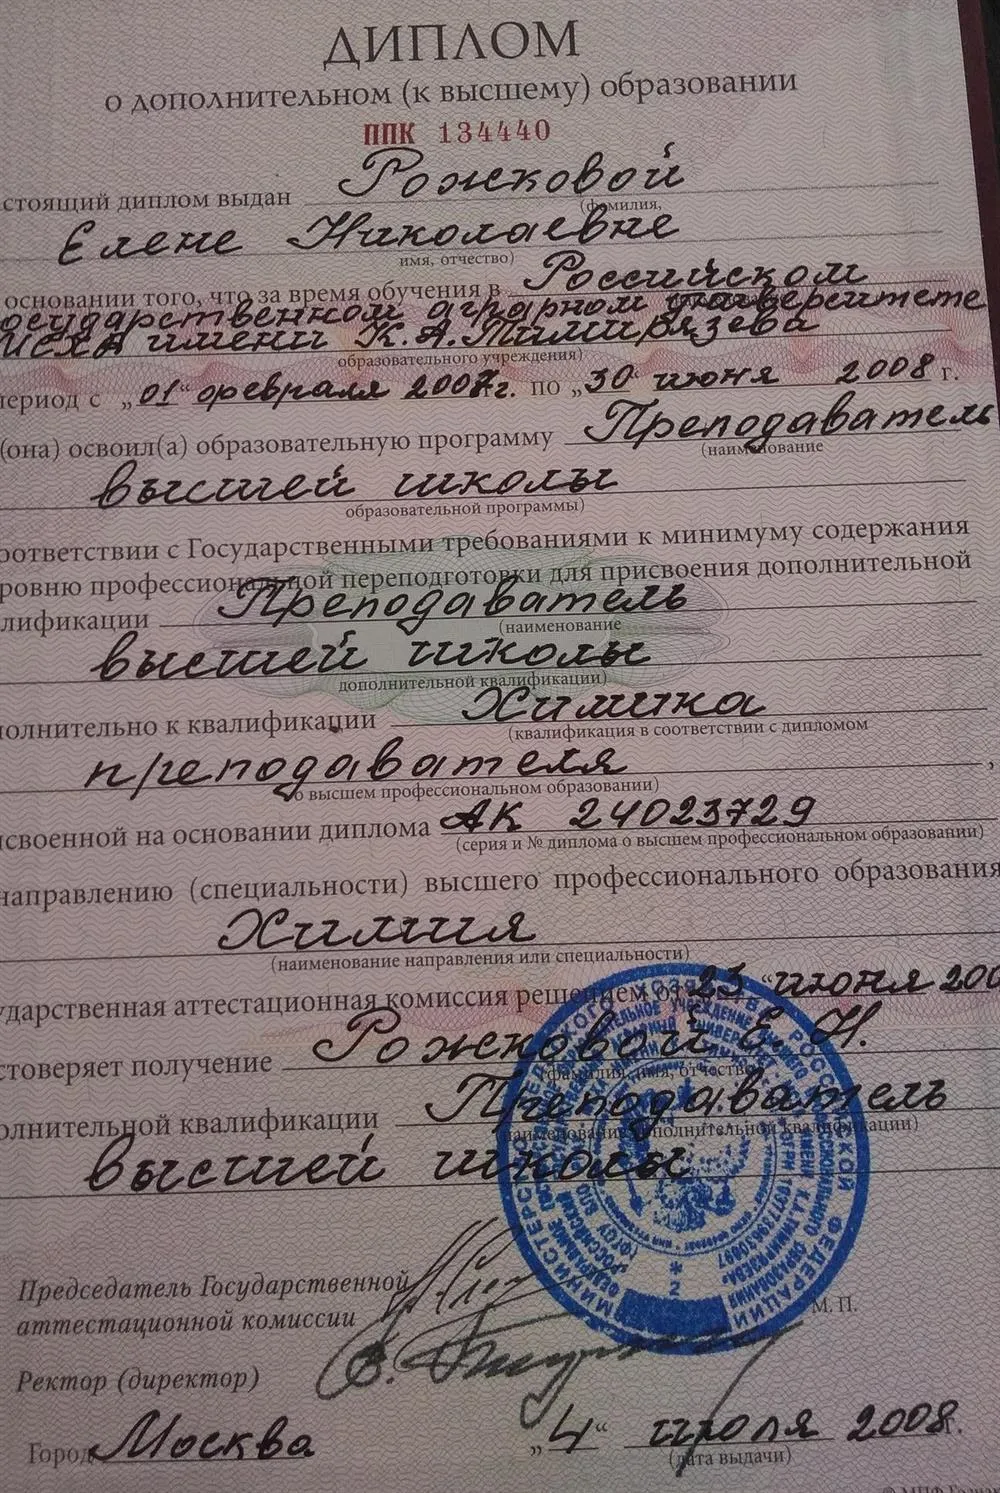 ДИПЛОМ
о дополнительном (к высшему) образовании
ППК 134440
стоящий диплом выдан Рожковой
(фамилия,
Елене Николаевне
имя, отчество)
основании того, что за время обучения в Российском
государственном аграрном университете
МСХА имени К.А.Тимирязева
образовательного учреждения)
период с „01“ февраля 2007г. по „30“ июня 2008 г.
(она) освоил(а) образовательную программу Преподаватель
(наименование
высшей школы
образовательной программы)
оответствии с Государственными требованиями к минимуму содержания
ровню профессиональной переподготовки для присвоения дополнительной
лификации Преподаватель
(наименование
высшей школы
дополнительной квалификации)
полнительно к квалификации Химика
(квалификация в соответствии с дипломом
преподавателя ,
о высшем профессиональном образовании)
исвоенной на основании диплома АК 24023729
(серия и № диплома о высшем профессиональном образовании)
направлению (специальности) высшего профессионального образования
Химия
(наименование направления или специальности)
ударственная аттестационная комиссия решением от „23“ июня 200
стоверяет получение Рожковой Е. Н.
(фамилия, имя, отчество)
олнительной квалификации Преподаватель
(наименование дополнительной квалификации)
высшей школы
Председатель Государственной
аттестационной комиссии
М. П.
Ректор (директор)
Город Москва „4“ июля 2008г.
(дата выдачи)